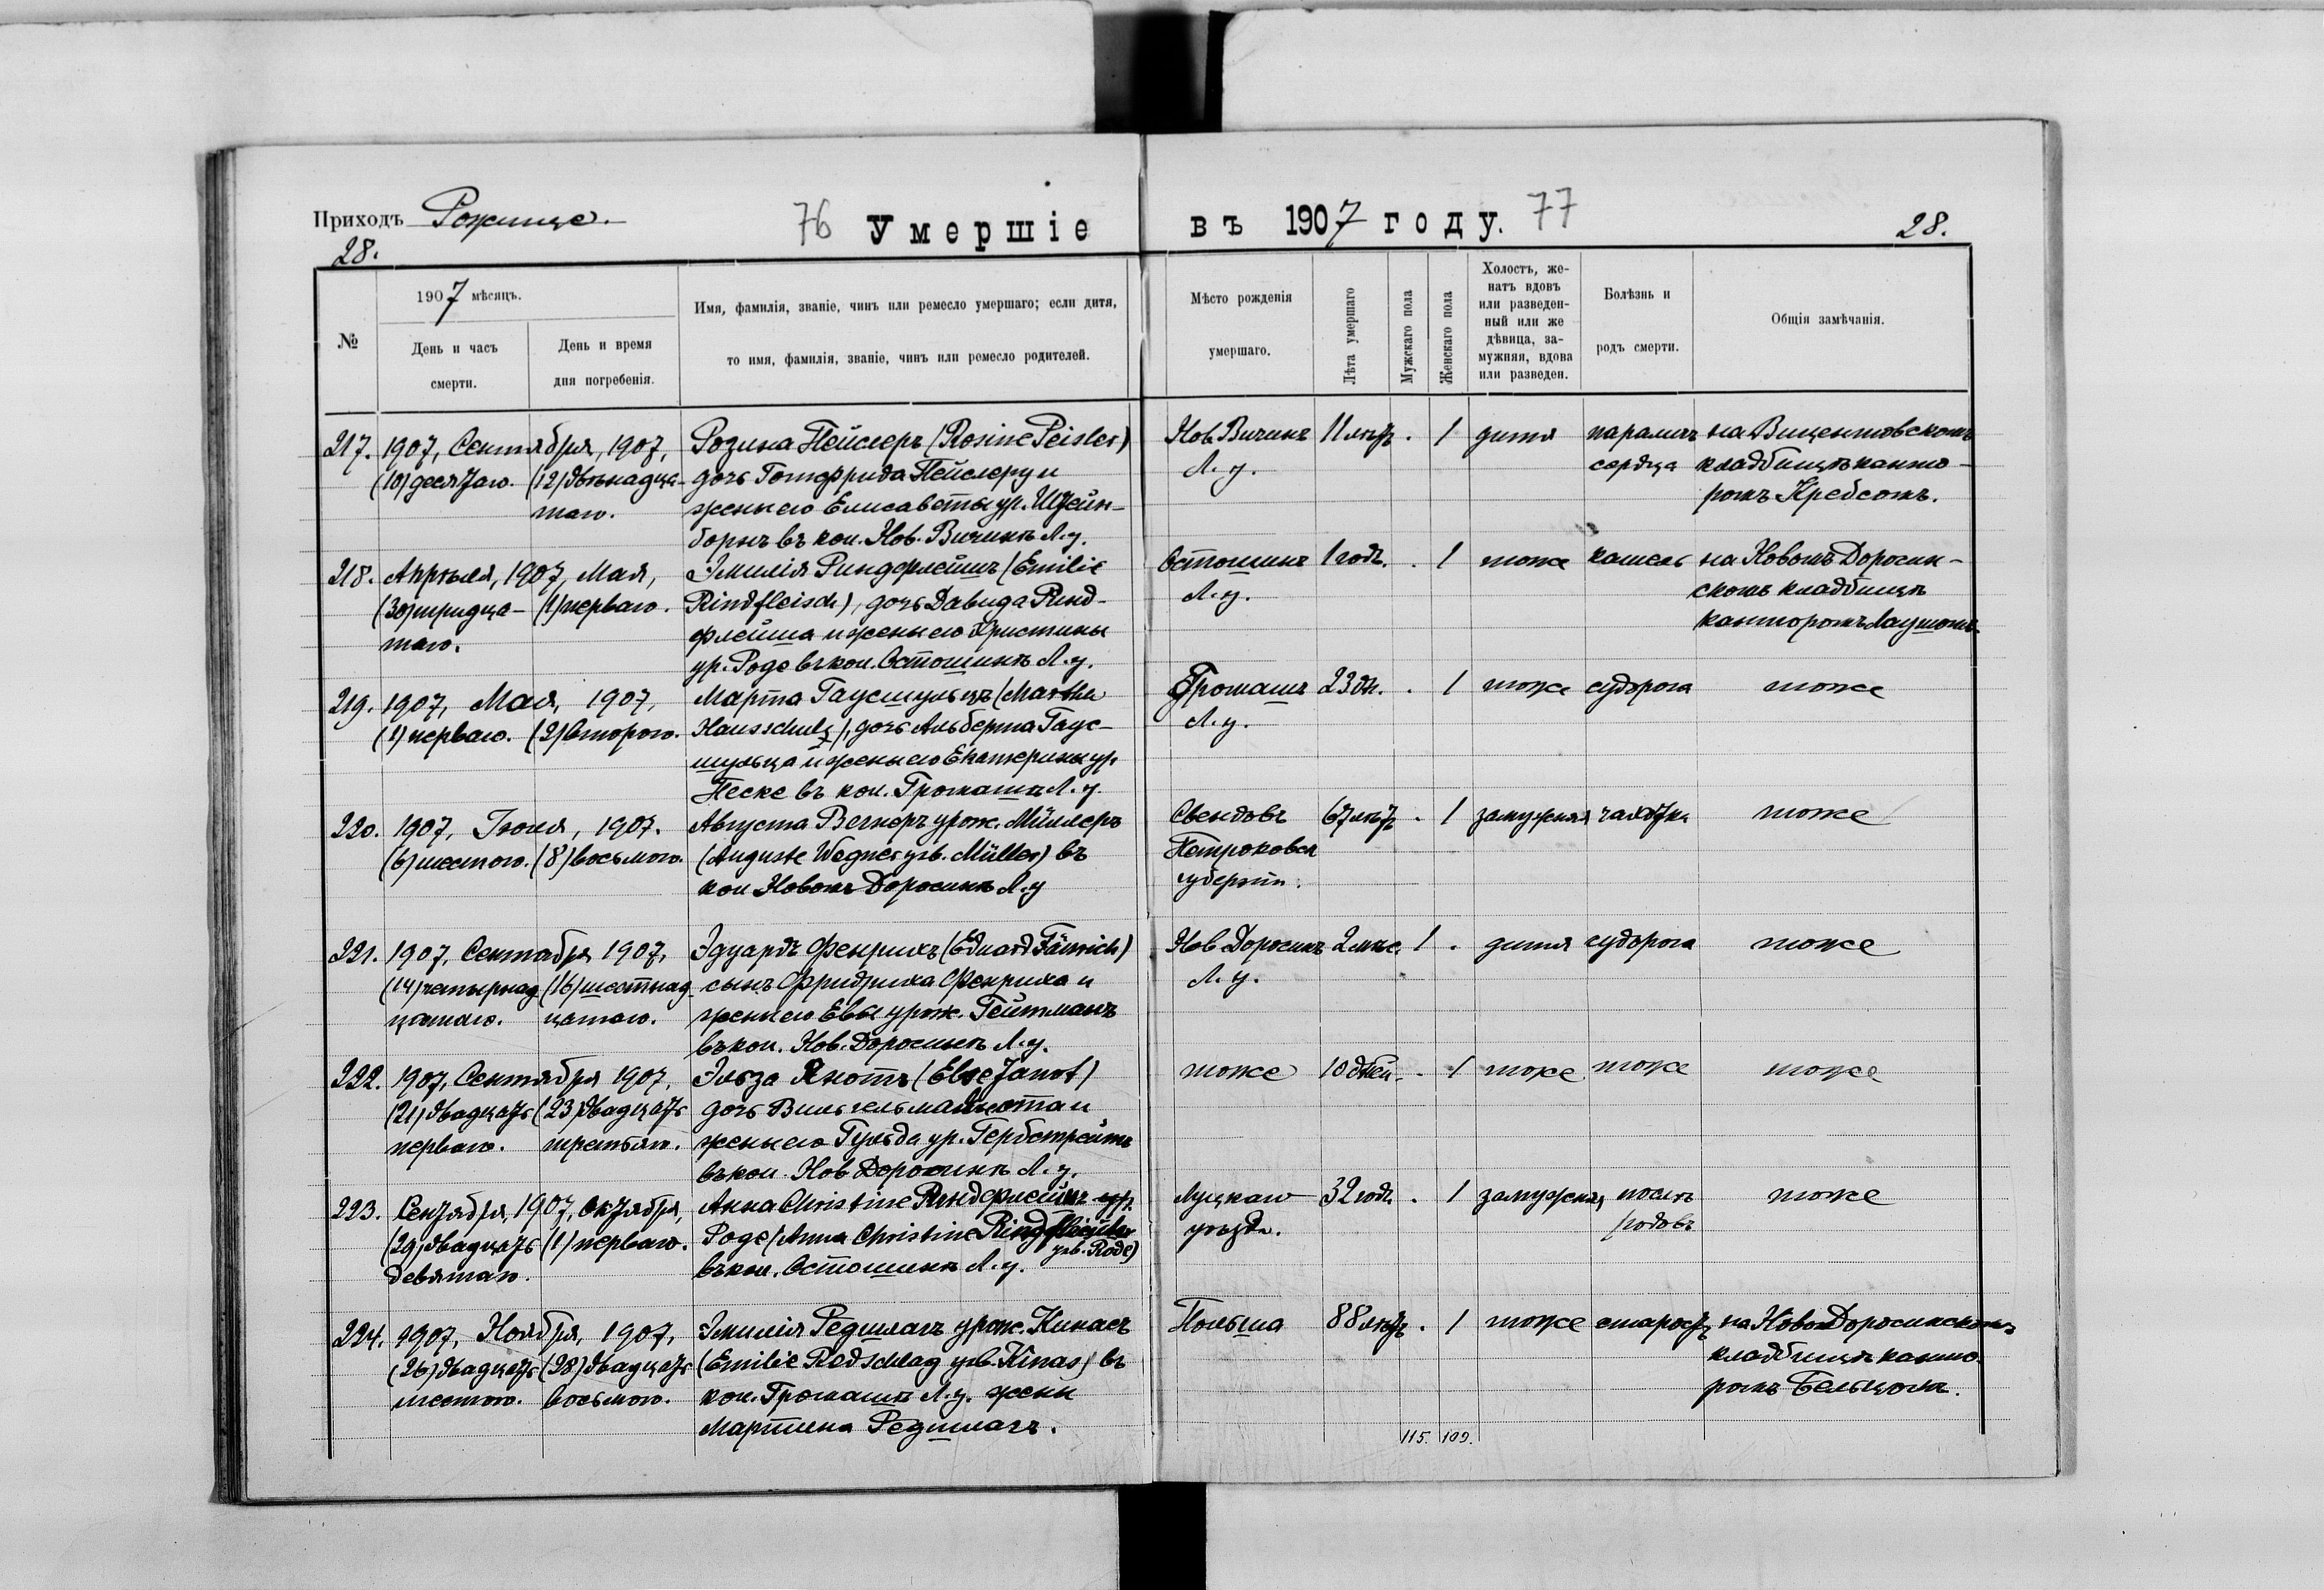 Приходъ Рожище.
76 Умершіе
въ 1907 году. 77
28.
28.
№
1907 мѣсяцъ.
День и часъ
смерти.
День и время
дня погребенія.
Имя, фамилія, званіе, чинъ или ремесло умершаго; если дитя,
то имя, фамилія, званіе, чинъ или ремесло родителей.
Мѣсто рожденія
умершаго.
Лѣта умершаго
Мужскаго пола
Женскаго пола
Холостъ, же-
натъ вдовъ
или разведен-
ный или же
дѣвица, за-
мужняя, вдова
или разведен.
Болѣзнь и
родъ смерти.
Общія замѣчанія.
217. 1907, Сентября, 1907, Розина Пейслеръ (Rosine Peisler) Нов. Вичинъ 11 лѣтъ . 1 дитя параличъ на Вицентовскомъ
(10) десятаго. (12) двѣнадца- дочь Готфрида Пейслеру и Л. у. сердца кладбищѣ канто-
таго. жены его Елисаветы ур. Штейн- ромъ Кребсомъ.
борнъ въ кол. Нов. Вичинѣ Л. у.
218. Апрѣля, 1907, Мая, Эмилія Риндфлейшъ (Emilie Остошинъ 1 годъ. . 1 тоже кашель на Новомъ Доросин-
(30) тридца- (1) перваго. Rindfleisch), дочь Давида Ринд- Л. у. скомъ кладбищѣ
таго. флейша и жены его Христины канторомъ Лаушомъ
ур. Роде въ кол. Остошинѣ Л. у.
219. 1907, Мая, 1907, Марта Гаусшульцъ (Martha Громашъ 23 дн. . 1 тоже судорога тоже
(1) перваго. (2) второго. Hausschulz), дочь Альберта Гаус- Л. у.
шульца и жены его Екатерины ур.
Песке въ кол. Громашѣ Л. у.
220. 1907, Іюля, 1907. Августа Вегнеръ урож. Мюллеръ Свендовъ 67 лѣтъ . 1 замужняя чахотка тоже
(6) шестого. (8) восьмого. (Auguste Wegner geb. Müller) въ Петроковск
кол Новомъ Доросинѣ Л. у губерніи.
221. 1907, Сентября 1907, Эдуардъ Фенрихъ (Eduard Fänrich) Нов Доросинъ 2 мѣс. 1 . дитя судорога тоже
(14) четырнад (16) шестнад- сынъ Фридриха Фенриха и Л. у.
цатаго. цатаго. жены его Евы урож. Гейтманъ
въ кол. Нов. Доросинѣ Л. у.
222. 1907, Сентября 1907, Эльза Янотъ (Else Janot) тоже 10 дней . 1 тоже тоже тоже
(21) двадцать (23) двадцать дочь Вильгельма Янота и
перваго. третьяго. жены его Гульда ур. Гербстрейтъ
въ кол. Нов Доросинѣ Л. у.
223. Сентября, 1907, Октября, Анна Christine Риндфлейшъ ур. Луцкаго 32 года . 1 замужняя послѣ тоже
(29) двадцать (1) перваго. Роде (Anna Christine Rindfleisch уѣзда. родовъ
девятаго. въ кол. Остошинѣ Л. у. geb. Rode)
224. 1907, Ноября, 1907, Эмилія Редшлагъ урож. Кинасъ Польша 88 лѣтъ . 1 тоже старость на НовомДоросинскомъ
(26) двадцать (28) двадцать (Emilie Redschlag geb. Kinas) въ кладбищѣ канто-
шестого. восьмого. кол. Громашѣ Л. у. жены ромъ Бельцомъ.
Мартина Редшлагъ.
115. 109.